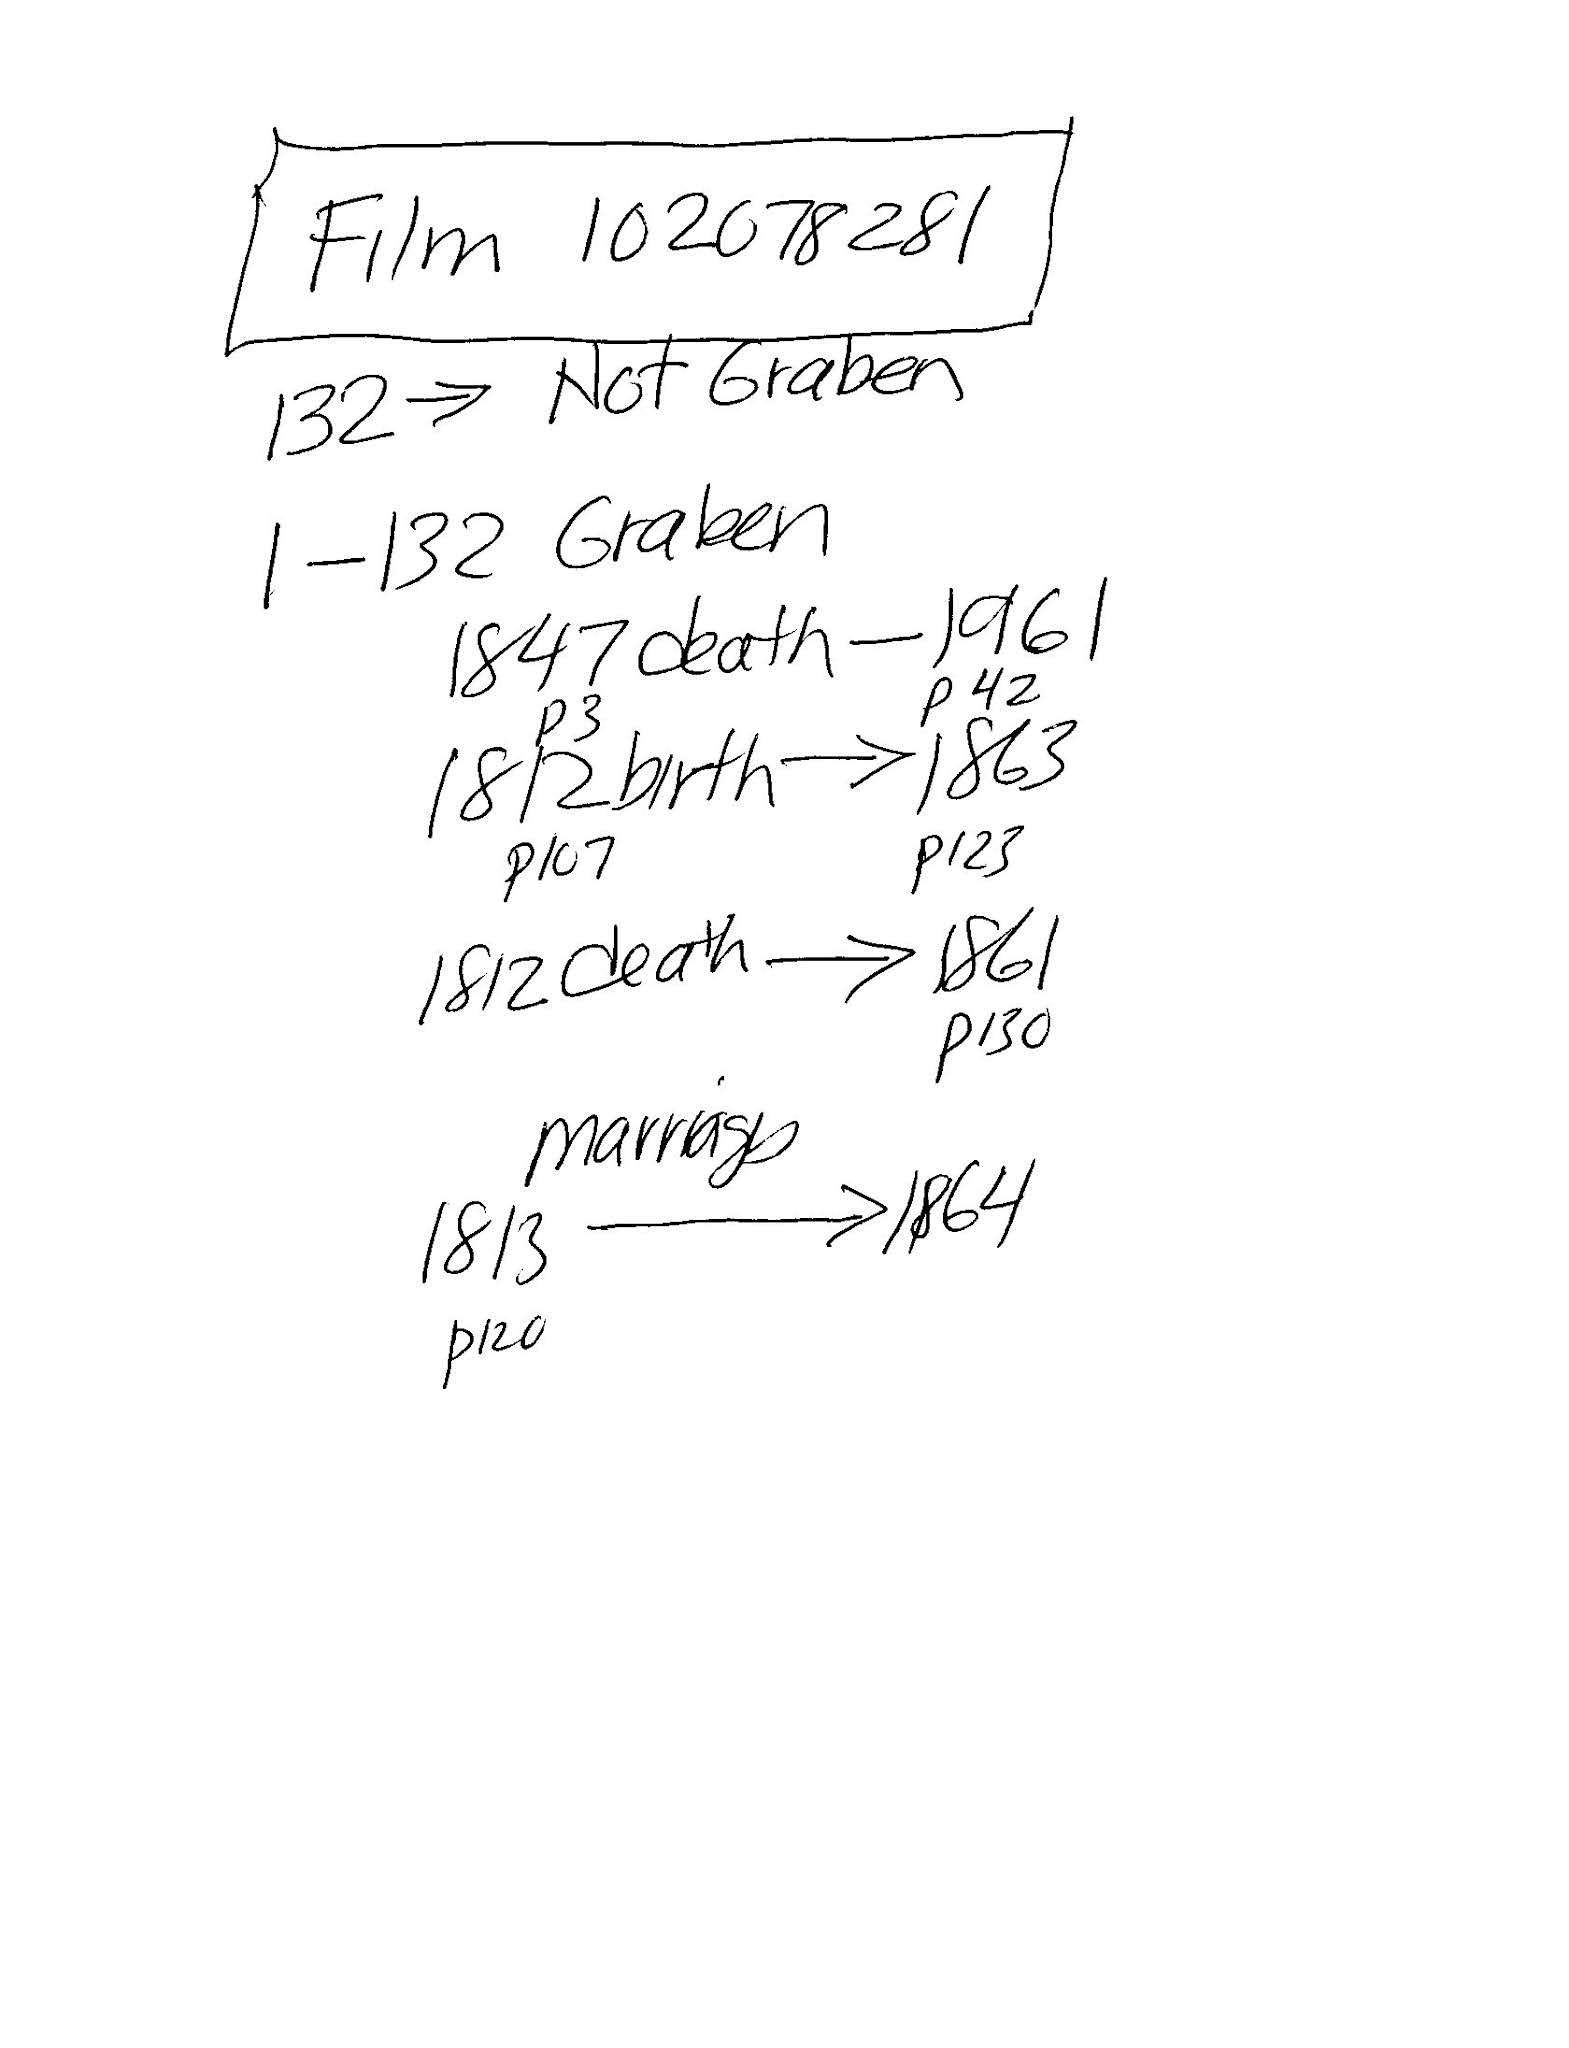 Film 102078281
132 → Not Graben
1-132 Graben
1847 death - 1961
p3 p42
1812 birth → 1863
p107 p123
1812 death → 1861
p130
marriage
1813 → 1864
p120